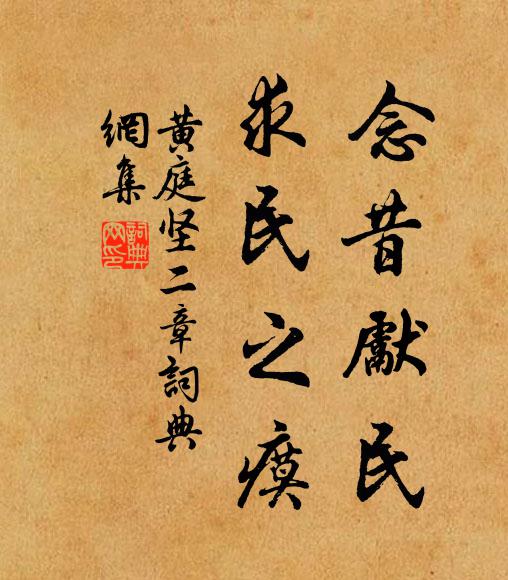 念昔獻民
求民之瘼
黃庭坚二章詞典
網集
詞典
网印